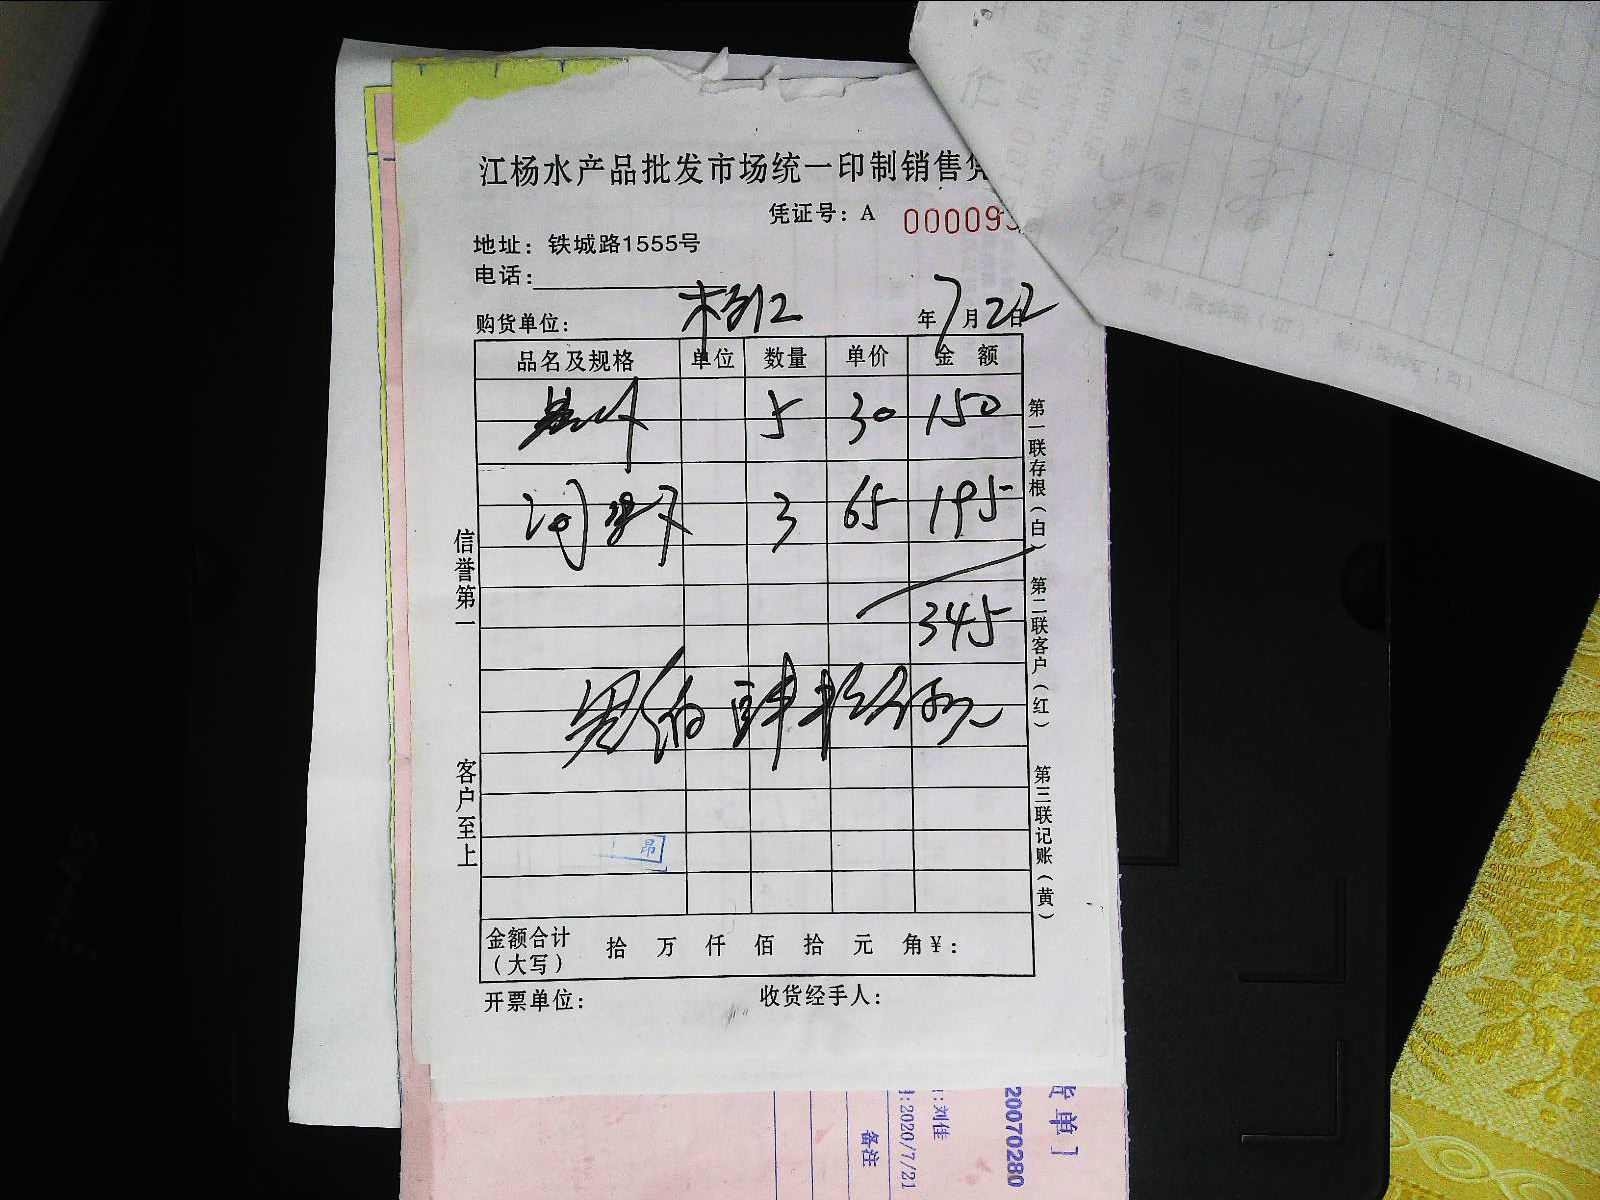 江杨水产品批发市场统一印制销售凭
凭证号：A 000095
地址：铁城路1555号
电话：
购货单位： 年7月22日
品名及规格 单位 数量 单价 金额
5 30 150
3 65 195
345
叁佰肆拾伍元
信誉第一
客户至上
第一联存根（白）
第二联客户（红）
第三联记账（黄）
昂
金额合计（大写） 拾 万 仟 佰 拾 元 角 ¥：
开票单位： 收货经手人：
货单]
20070280
:刘佳
:2020/7/21
备注